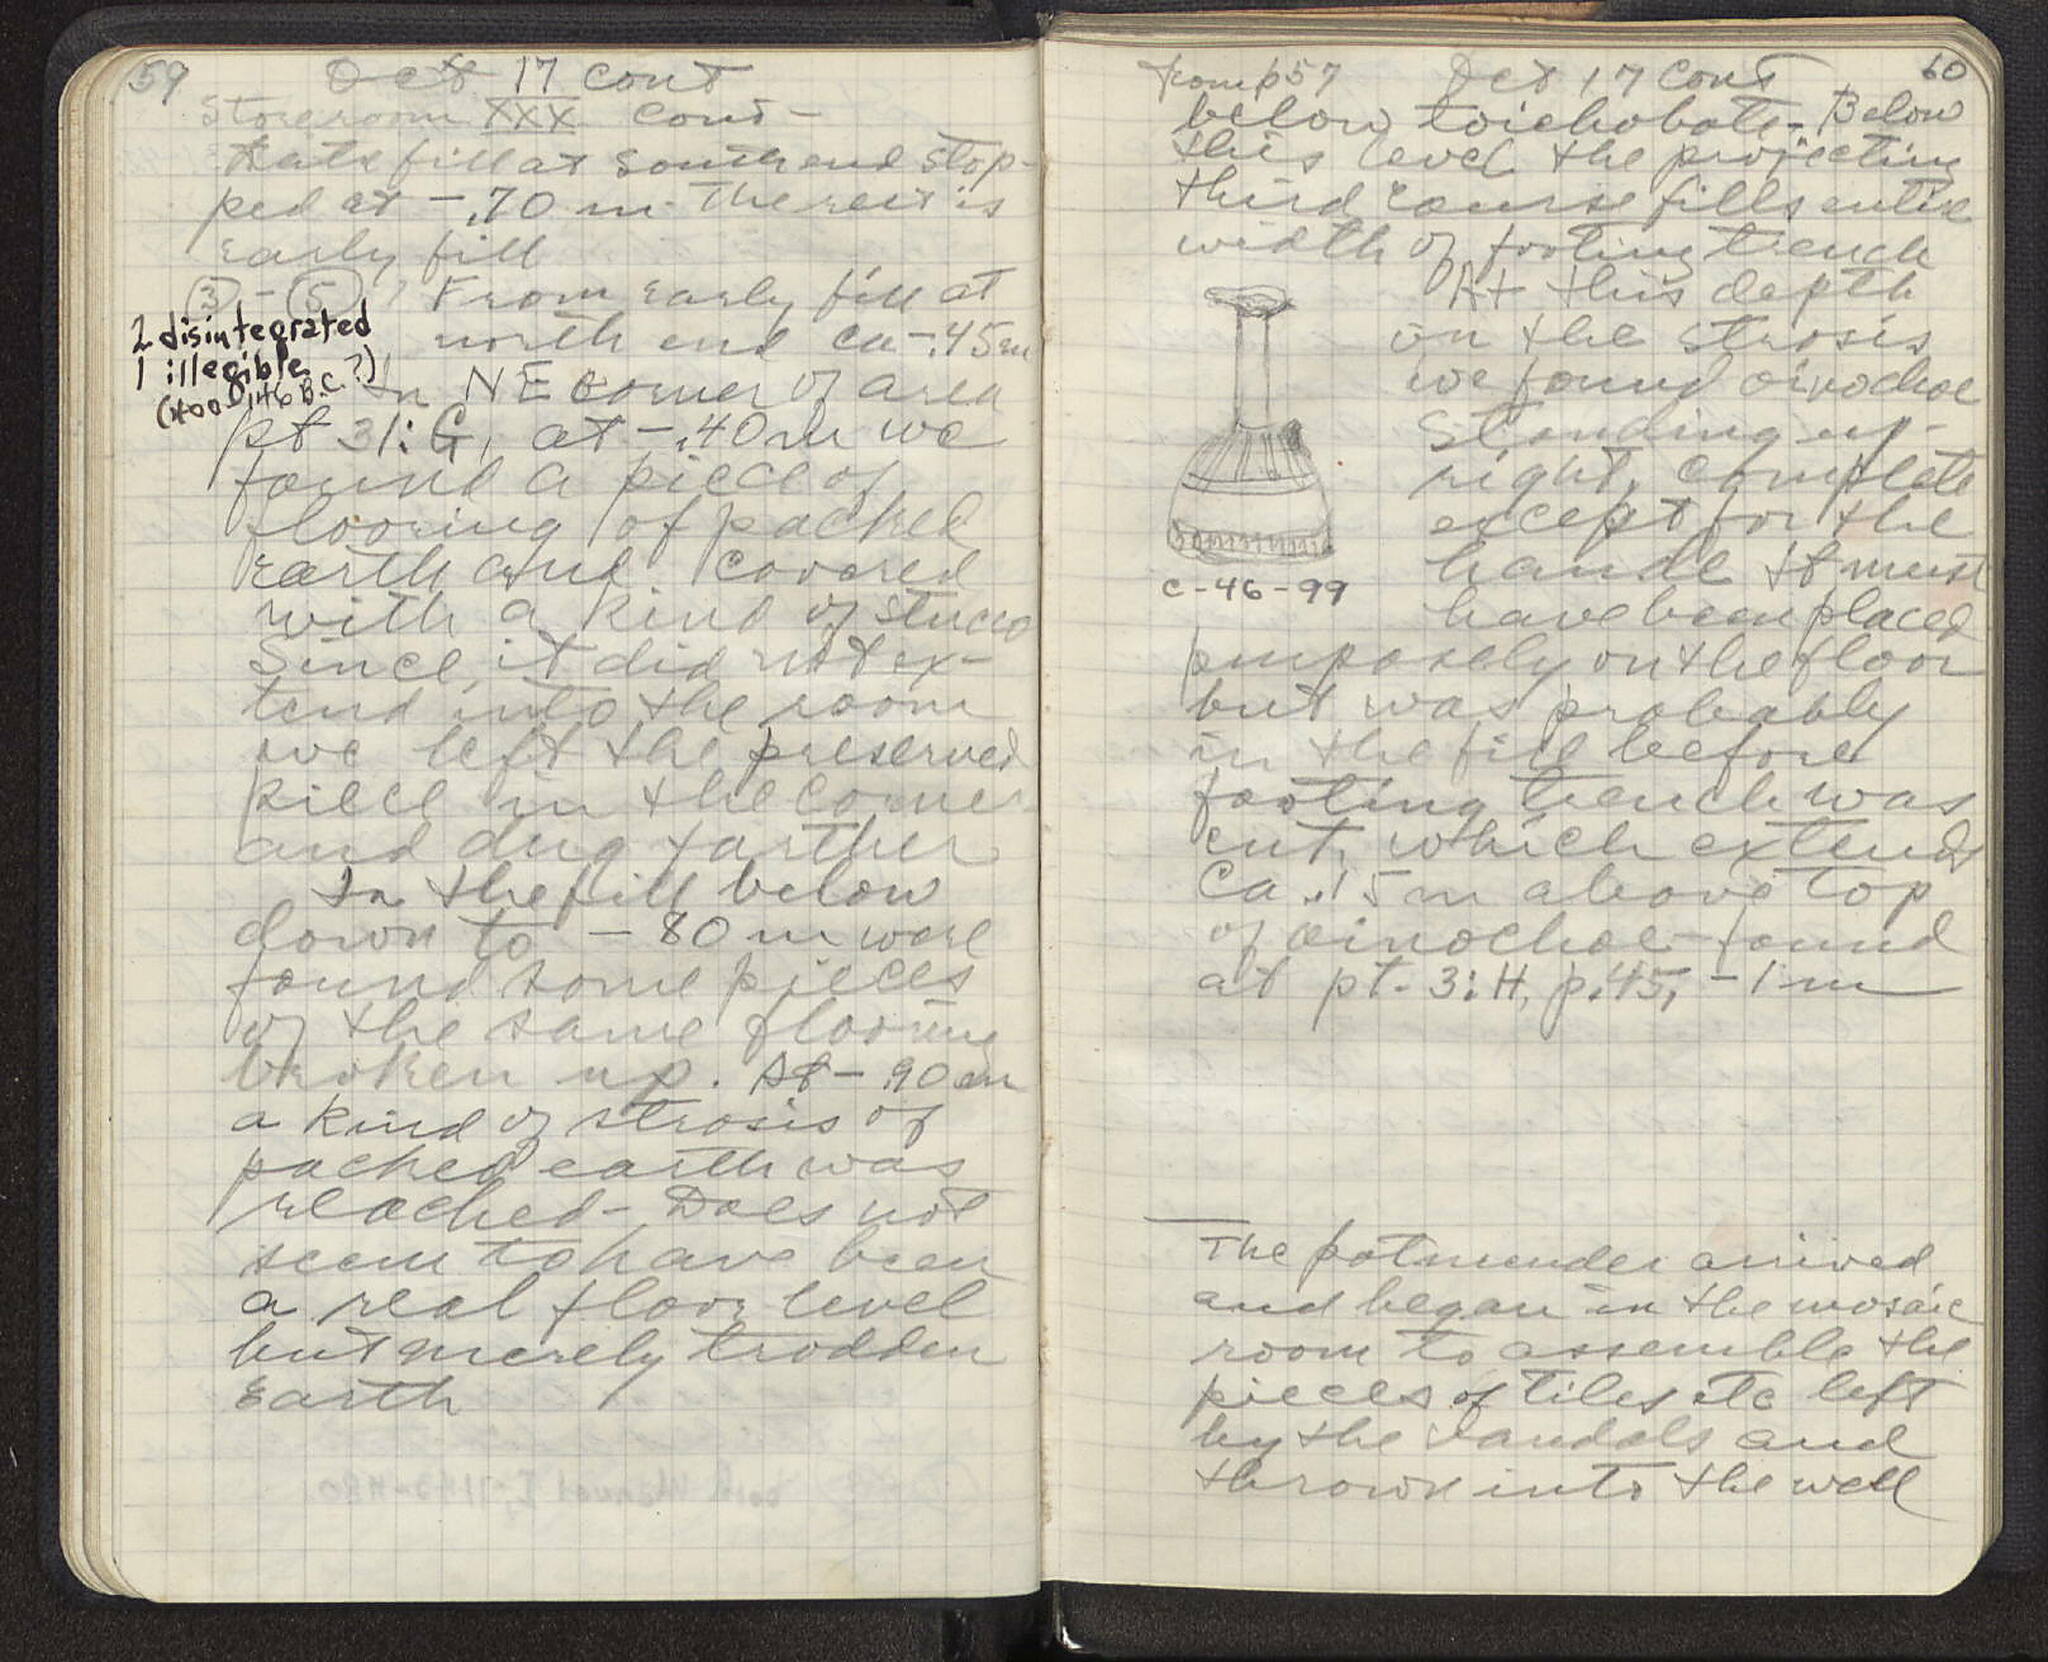 59
Oct 17 cont
Storeroom XXX cont -
Late fill at south end stop-
ped at -.70 m. The rest is
early fill
3 - 5, From early fill at
north end ca -.45 m
2 disintegrated
1 illegible
(400-146 B.C.?)
In NE corner of area
pt 31:G, at -.40 m we
found a piece of
flooring of packed
earth and covered
with a kind of stucco
Since it did not ex-
tend into the room
we left the preserved
piece in the corner
and dug farther
In the fill below
down to -80 m were
found some pieces
of the same flooring
broken up. At -.90 m
a kind of strosis of
packed earth was
reached - Does not
seem to have been
a real floor level
but merely trodden
earth
from p57 Oct 17 cont 60
below toichobate - Below
this level the projecting
third course fills entire
width of footing trench
At this depth
on the strosis
we found oinochoe
standing up-
right, complete
except for the
handle It must
have been placed
C-46-99
purposely on the floor
but was probably
in the fill before
footing trench was
cut, which extends
Ca .15 m above top
of oinochoe - found
at pt. 3:H, p.45, -1 m
The potmender arrived
and began in the mosaic
room to assemble the
pieces of tiles etc left
by the vandals and
thrown into the well